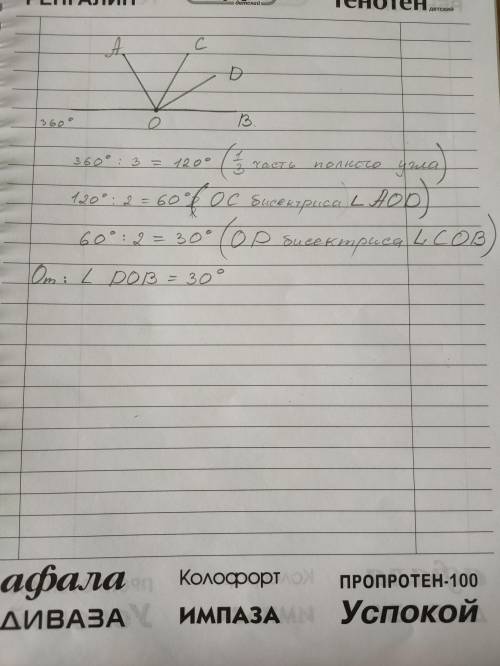 РЕНГАЛИН
детский
ТЕНОТЕН детский
A C
D
360° O B.
360° : 3 = 120° (1/3 часть полного угла)
120° : 2 = 60° (OC бисектриса ∠ AOD)
60° : 2 = 30° (OD бисектриса ∠ COB)
От: ∠ DOB = 30°
афала Колофорт ПРОПРОТЕН-100
ДИВАЗА ИМПАЗА Успокой